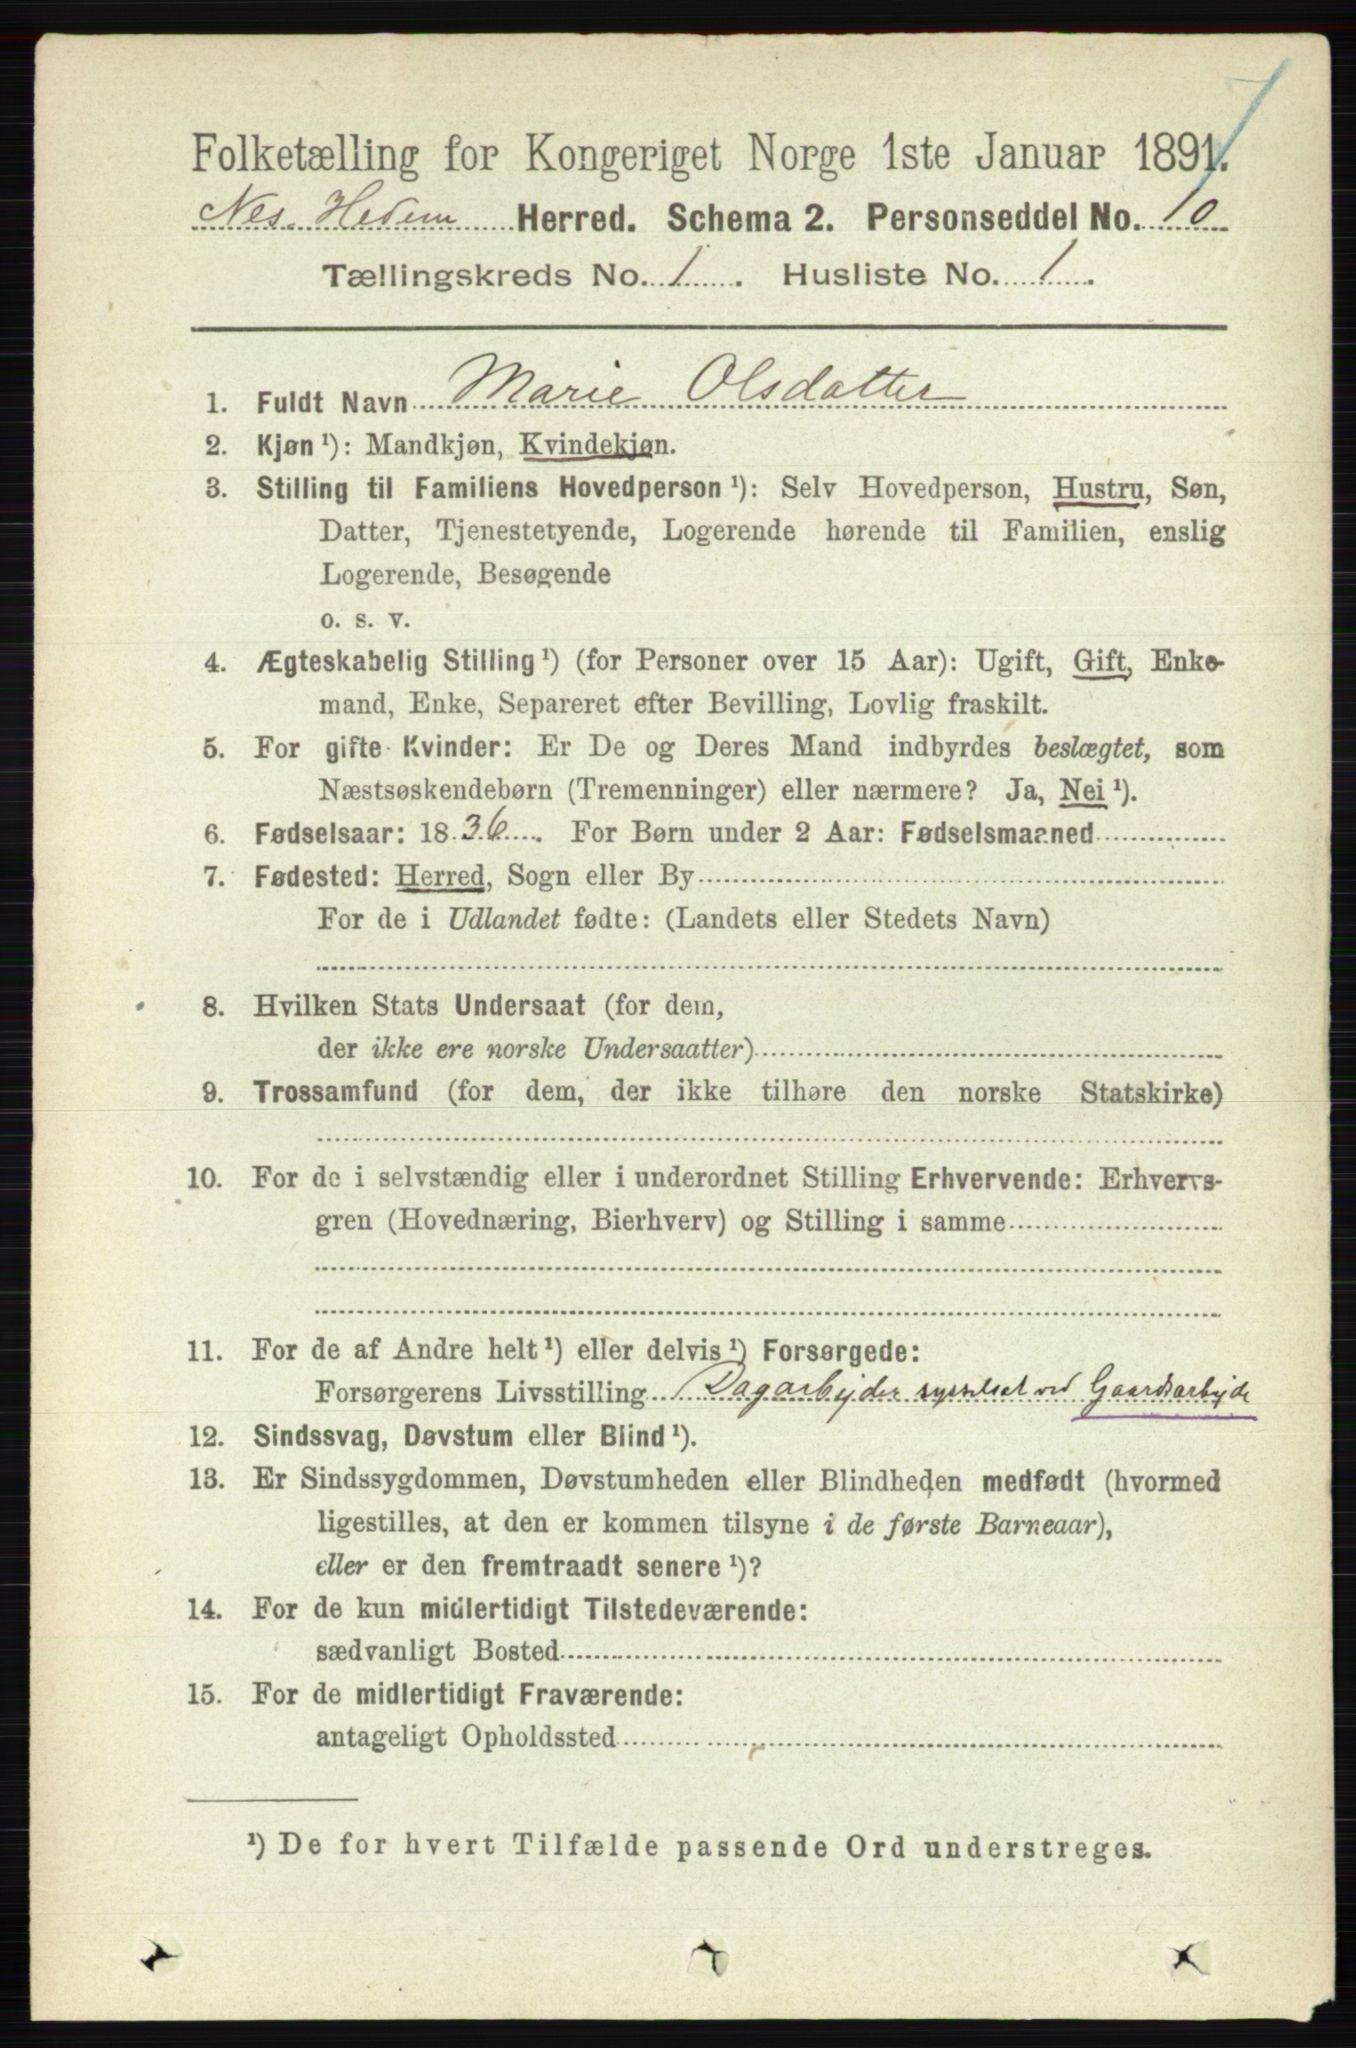 Folketælling for Kongeriget Norge 1ste Januar 1891.
Nes. Hedem Herred. Schema 2. Personseddel No. 10
Tællingskreds No. 1. Husliste No. 1.
1. Fuldt Navn Marie Olsdatter
2. Kjøn ¹): Mandkjøn, Kvindekjøn.
3. Stilling til Familiens Hovedperson ¹): Selv Hovedperson, Hustru, Søn,
Datter, Tjenestetyende, Logerende hørende til Familien, enslig
Logerende, Besøgende
o. s. v.
4. Ægteskabelig Stilling ¹) (for Personer over 15 Aar): Ugift, Gift, Enke-
mand, Enke, Separeret efter Bevilling, Lovlig fraskilt.
5. For gifte Kvinder: Er De og Deres Mand indbyrdes beslægtet, som
Næstsøskendebørn (Tremenninger) eller nærmere? Ja, Nei ¹).
6. Fødselsaar: 1836. For Børn under 2 Aar: Fødselsmaaned
7. Fødested: Herred, Sogn eller By
For de i Udlandet fødte: (Landets eller Stedets Navn)
8. Hvilken Stats Undersaat (for dem,
der ikke ere norske Undersaatter)
9. Trossamfund (for dem, der ikke tilhøre den norske Statskirke)
10. For de i selvstændig eller i underordnet Stilling Erhvervende: Erhvervs-
gren (Hovednæring, Bierhverv) og Stilling i samme
11. For de af Andre helt ¹) eller delvis ¹) Forsørgede:
Forsørgerens Livsstilling Dagarbejder sysselsat ved Gaardsarbejde
12. Sindssvag, Døvstum eller Blind ¹).
13. Er Sindssygdommen, Døvstumheden eller Blindheden medfødt (hvormed
ligestilles, at den er kommen tilsyne i de første Barneaar),
eller er den fremtraadt senere ¹)?
14. For de kun midlertidigt Tilstedeværende:
sædvanligt Bosted
15. For de midlertidigt Fraværende:
antageligt Opholdssted
¹) De for hvert Tilfælde passende Ord understreges.